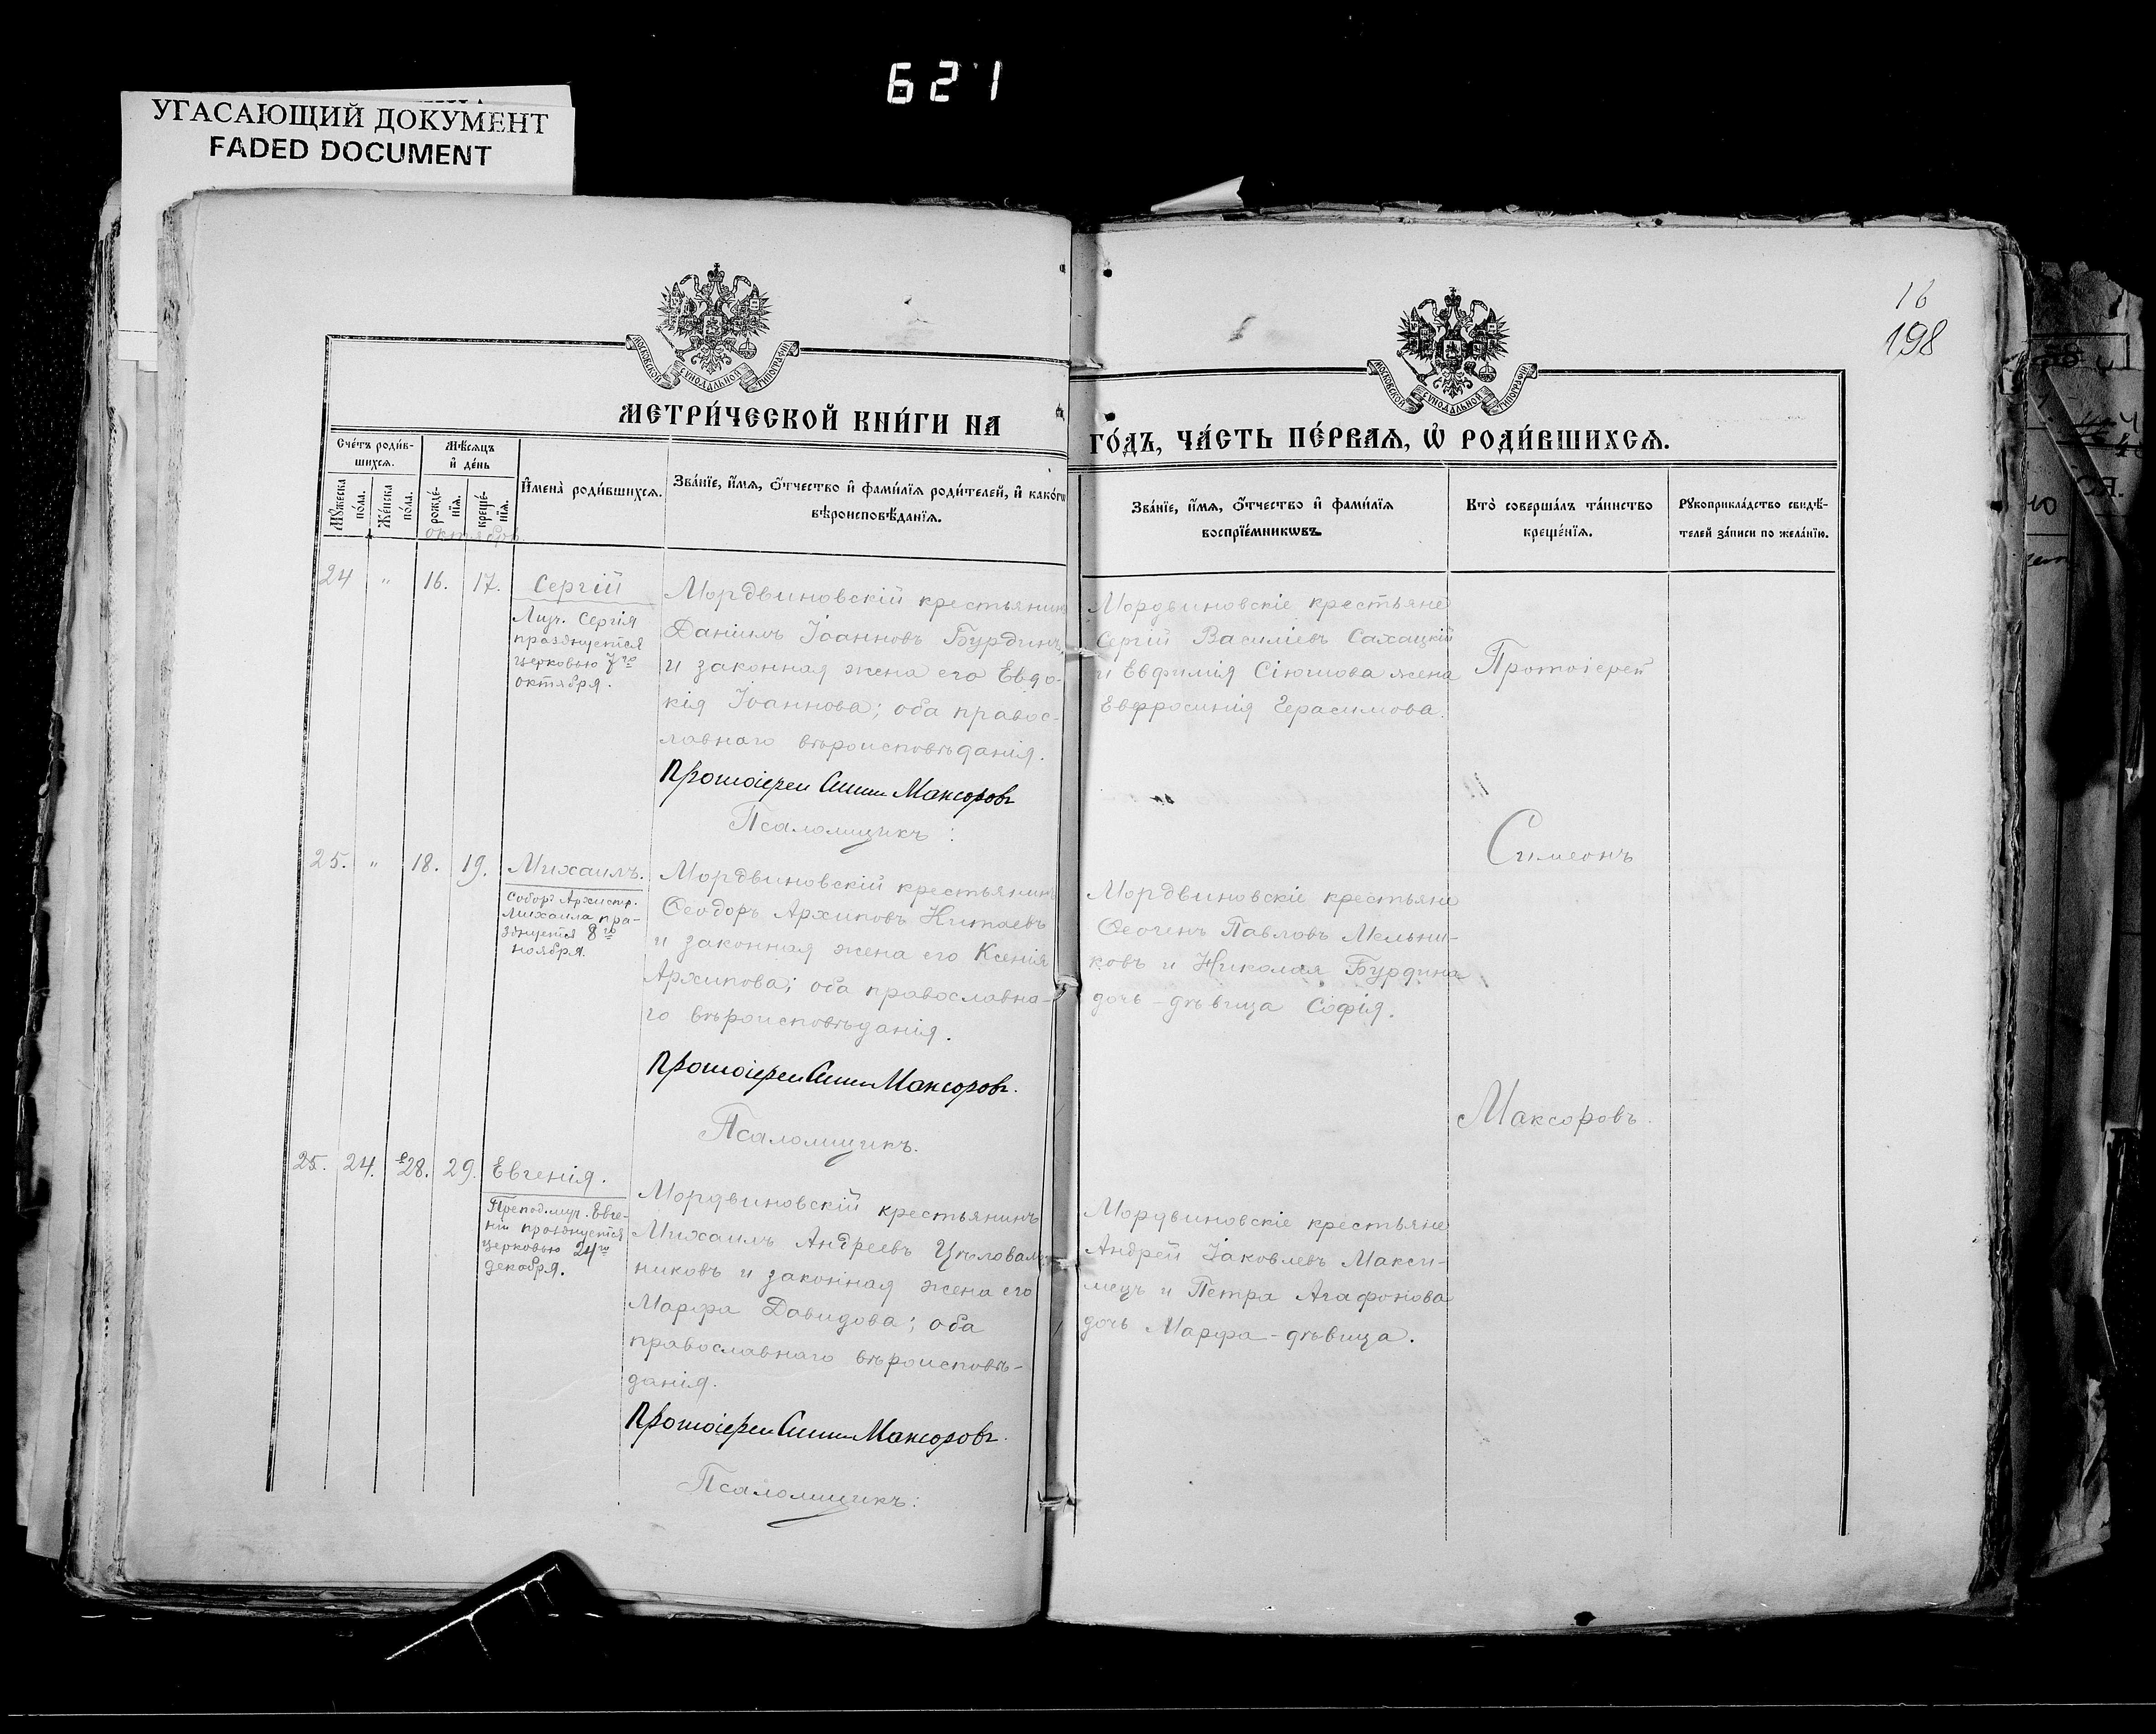 621
УГАСАЮЩИЙ ДОКУМЕНТ
FADED DOCUMENT
16
198
МОСКОВСКОЙ СѴНОДАЛЬНОЙ ТИПОГРАФІИ
МОСКОВСКОЙ СѴНОДАЛЬНОЙ ТИПОГРАФІИ
МЕТРИ́ЧЕСКОЙ КНИ́ГИ НА
ГО́ДЪ, ЧА́СТЬ ПЕ́РВАЯ, Ѡ҆ РОДИ́ВШИХСЯ.
Сче́тъ роди́в-
шихся.
Мѣ́сяцъ
и҆ де́нь
Му́жеска
по́ла.
Же́нска
по́ла.
рожде́-
нїя.
креще́-
нїя.
И҆мена̀ роди́вшихся.
Зва́нїе, и҆́мя, ѻ҆́тчество и҆ фами́лїя роди́телей, и҆ како́гѡ
вѣроисповѣ́данїя.
Зва́нїе, и҆́мя, ѻ҆́тчество и҆ фами́лїя
воспрїе́мникѡвъ.
Кто̀ соверша́лъ та́инство
креще́нїя.
Рукоприкла́дство свидѣ́-
телей за́писи по жела́нїю.
октябрь.
24 " 16. 17. Сергій
Муч. Сергія
празднуется
церковью 7го
октября.
Мордвиновскій крестьянинъ
Даніилъ Іоанновъ Бурдинъ,
и законная жена его Евдо-
кія Іоаннова; оба правос-
лавнаго вѣроисповѣданія.
Протоіерей Симеонъ Максоровъ
Псаломщикъ:
Мордвиновскіе крестьяне
Сергій Василіевъ Сахацкій
и Евфимія жена
Евфросинія Герасимова.
Протоіерей
25. " 18. 19. Михаилъ.
Соборъ Архистр.
Михаила пра-
зднуется 8го
ноября.
Мордвиновскій крестьянинъ
Ѳеодоръ Архиповъ Нитаевъ
и законная жена его Ксенія
Архипова; оба православна-
го вѣроисповѣданія.
Протоіерей Симеонъ Максоровъ.
Псаломщикъ.
Мордвиновскіе крестьяне
Ѳеогенъ Павловъ Мельни-
ковъ и Николая Бурдина
дочь-дѣвица Софія.
Симеонъ
Максоровъ.
25. 24. 28. 29. Евгенія.
Препод.муч. Евге-
ніи празднуется
церковью 24го
декабря.
Мордвиновскій крестьянинъ
Михаилъ Андреевъ Цѣловаль-
никовъ и законная жена его
Марфа Давидова; оба
православнаго вѣроисповѣ-
данія.
Протоіерей Симеонъ Максоровъ.
Псаломщикъ:
Мордвиновскіе крестьяне
Андрей Іаковлевъ Макси-
мецъ и Петра Агафонова
дочь Марфа-дѣвица.